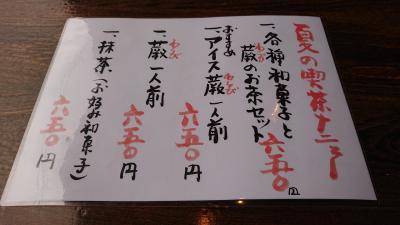 夏の喫茶メニュー
一、各種和菓子と
蕨のお茶セット 六五〇円
わらび
おすすめ
一、アイス蕨 一人前
わらび
六五〇円
一、蕨 一人前
わらび
六五〇円
一、抹茶(お好み和菓子)
六五〇円